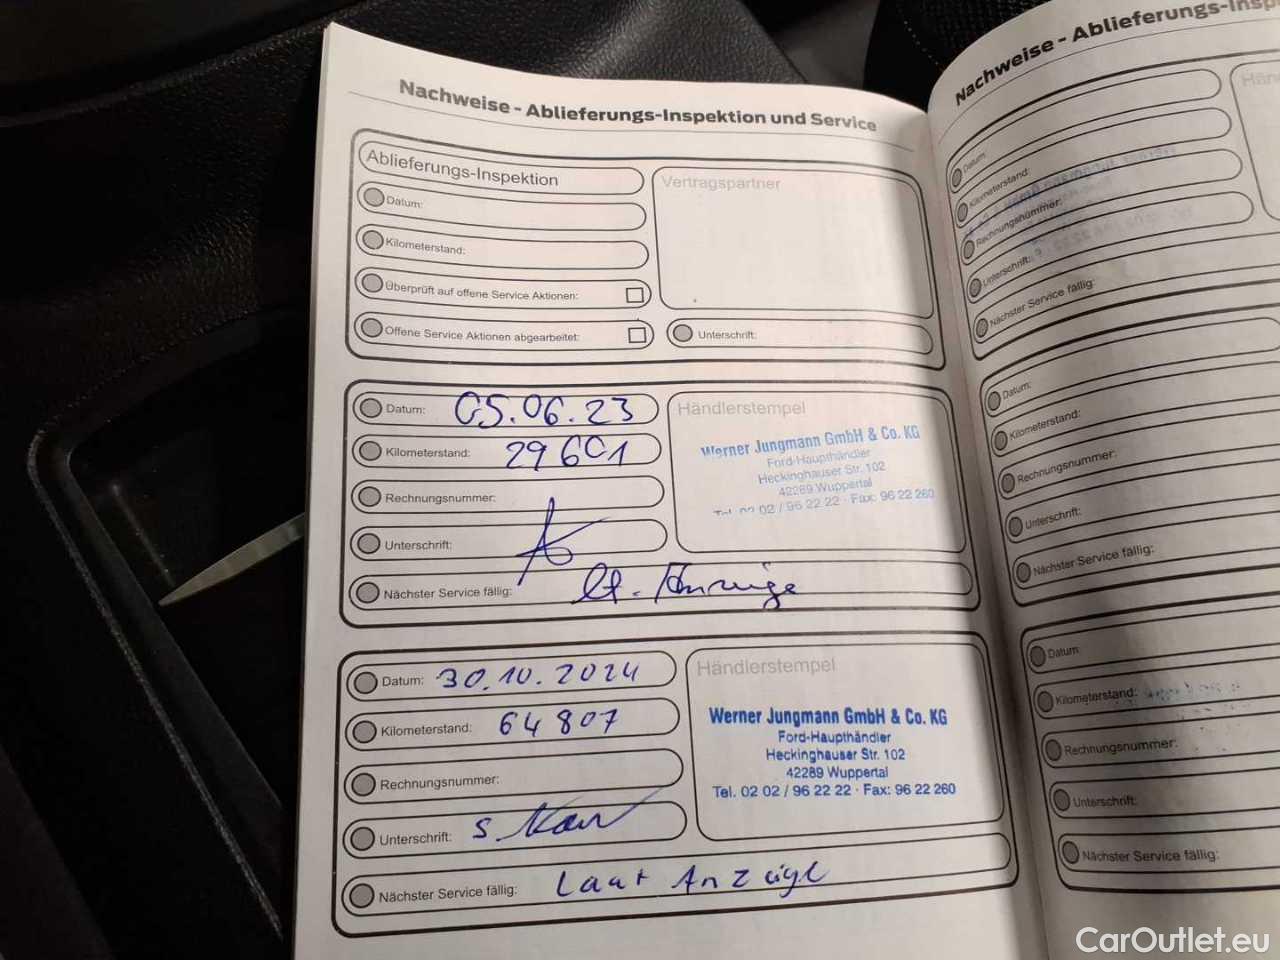 Nachweise - Ablieferungs-Inspektion und Service
Ablieferungs-Inspektion
Datum:
Kilometerstand:
Überprüft auf offene Service Aktionen:
Offene Service Aktionen abgearbeitet:
Vertragspartner
Unterschrift:
Datum: 05.06.23
Kilometerstand: 29601
Rechnungsnummer:
Unterschrift:
Nächster Service fällig: lt. Anzeige
Händlerstempel
Werner Jungmann GmbH & Co. KG
Ford-Haupthändler
Heckinghauser Str. 102
42289 Wuppertal
Tel. 02 02 / 96 22 22 · Fax: 96 22 260
Datum: 30.10.2024
Kilometerstand: 64807
Rechnungsnummer:
Unterschrift:
Nächster Service fällig: Laut Anzeige
Händlerstempel
Werner Jungmann GmbH & Co. KG
Ford-Haupthändler
Heckinghauser Str. 102
42289 Wuppertal
Tel. 02 02 / 96 22 22 · Fax: 96 22 260
Nachweise - Ablieferungs-Insp
Datum:
Kilometerstand:
Rechnungsnummer:
Unterschrift:
Nächster Service fällig:
Händ
Datum:
Kilometerstand:
Rechnungsnummer:
Unterschrift:
Nächster Service fällig:
Datum
Kilometerstand:
Rechnungsnummer:
Unterschrift:
Nächster Service fällig:
CarOutlet.eu